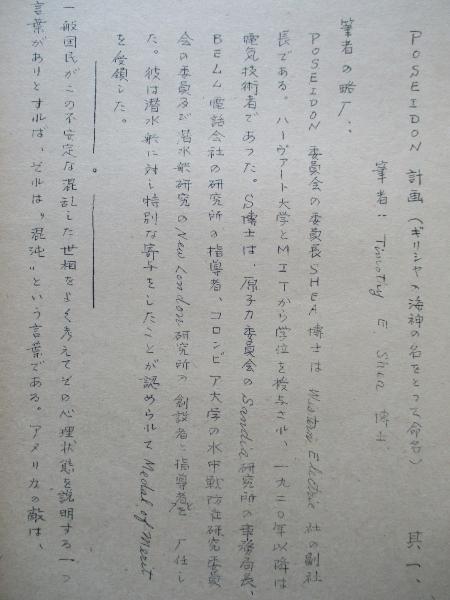 POSEIDON 計画 (ギリシヤの海神の名をとつて命名) 其一、
筆者：Timothy E. Shea 博士.
筆者の略歴：
POSEIDON 委員会の委員長SHEA 博士は Western Electric 社の副社
長である。ハーヴァート大学とMITから学位を授与され、一九二〇年以降は
電気技術者であつた。S博士は、原子力委員会のSandia研究所の事務局長、
BELL 電話会社の研究所の指導者、コロンビア大学の水中戦防在研究委員
会の委員及び潜水艦研究のNew London研究所の創設者と指導者を歴任し
た。彼は潜水艦に対し特別な寄与をしたことが認められて Medal of Merit
を受領した。
一般国民がこの不安定な混乱した世相をよく考えてその心理状態を説明する一つ
言葉がありとすれば、それは"混沌"という言葉である。アメリカの敵は、